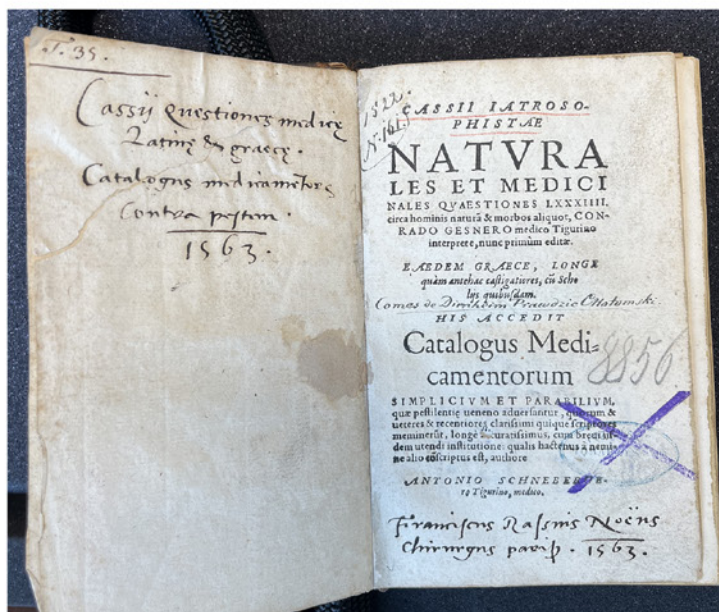 T. 35.
Cassij Questiones medicę
Latinę & graecę.
Catalogus medicamētorū
Contra pestem.
1563.
1522.
N. 161.
CASSII IATROSO-
PHISTAE
NATVRA
LES ET MEDICI
NALES QVAESTIONES LXXXIIII.
circa hominis naturā & morbos aliquot, CON-
RADO GESNERO medico Tigurino
interprete, nunc primùm editæ.
EAEDEM GRAECE, LONGE
quàm antehac castigatiores, cū Scho
lijs quibusdam.
Comes de Dirnheim Prawdzic
HIS ACCEDIT
Catalogus Medi-
camentorum
8856
SIMPLICIVM ET PARABILIVM,
quæ pestilentię ueneno aduersantur, quorum &
ueteres & recentiores clarissimi quique scriptores
meminerūt, longè accuratissimus, cum breui
dem utendi institutione: qualis hactenus à nemi-
ne alio cōscriptus est, authore
ANTONIO SCHNEEBERGE-
ro Tigurino, medico.
Franciscus Rassius Noëns
Chirurgus paris. 1563.